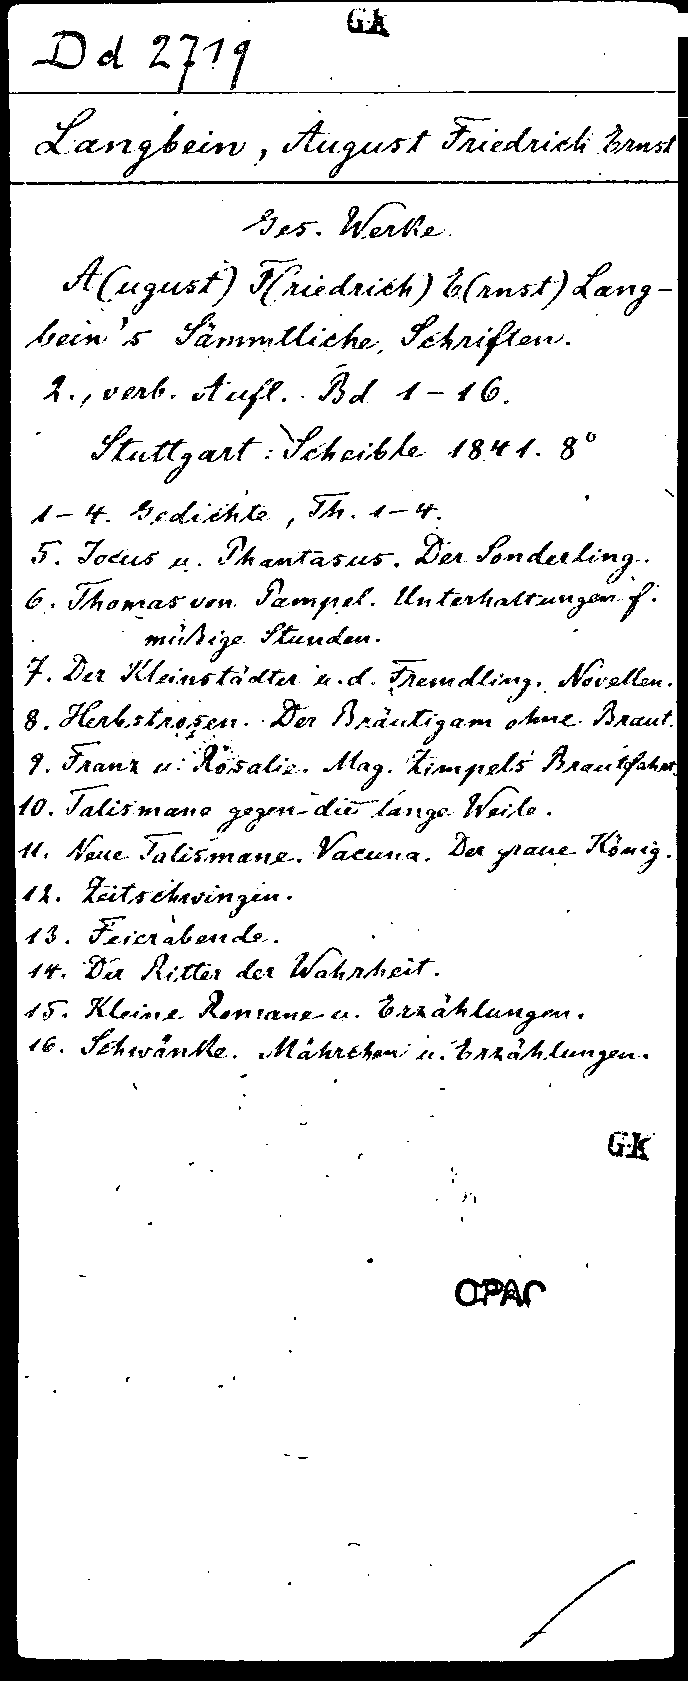 GK
Dd 2719
Langbein, August Friedrich Ernst
Ges. Werke.
A(ugust) F(riedrich) E(rnst) Lang-
bein's Sämmtliche Schriften.
2., verb. Aufl. Bd 1-16.
Stuttgart: Scheible 1841. 8°
1-4. Gedichte, Th. 1-4.
5. Jocus u. Phantasus. Der Sonderling.
6. Thomas von Pampel. Unterhaltungen f.
müßige Stunden.
7. Der Kleinstädter u. d. Fremdling. Novellen.
8. Herbstrosen. Der Bräutigam ohne Braut.
9. Franz u. Rosalie. Mag. Zimpels Brautfahrt
10. Talismane gegen die lange Weile.
11. Neue Talismane. Vacuna. Der graue König.
12. Zeitschwingen.
13. Feierabende.
14. Der Ritter der Wahrheit.
15. Kleine Romane u. Erzählungen.
16. Schwänke. Mährchen u. Erzählungen.
GK
OPAC